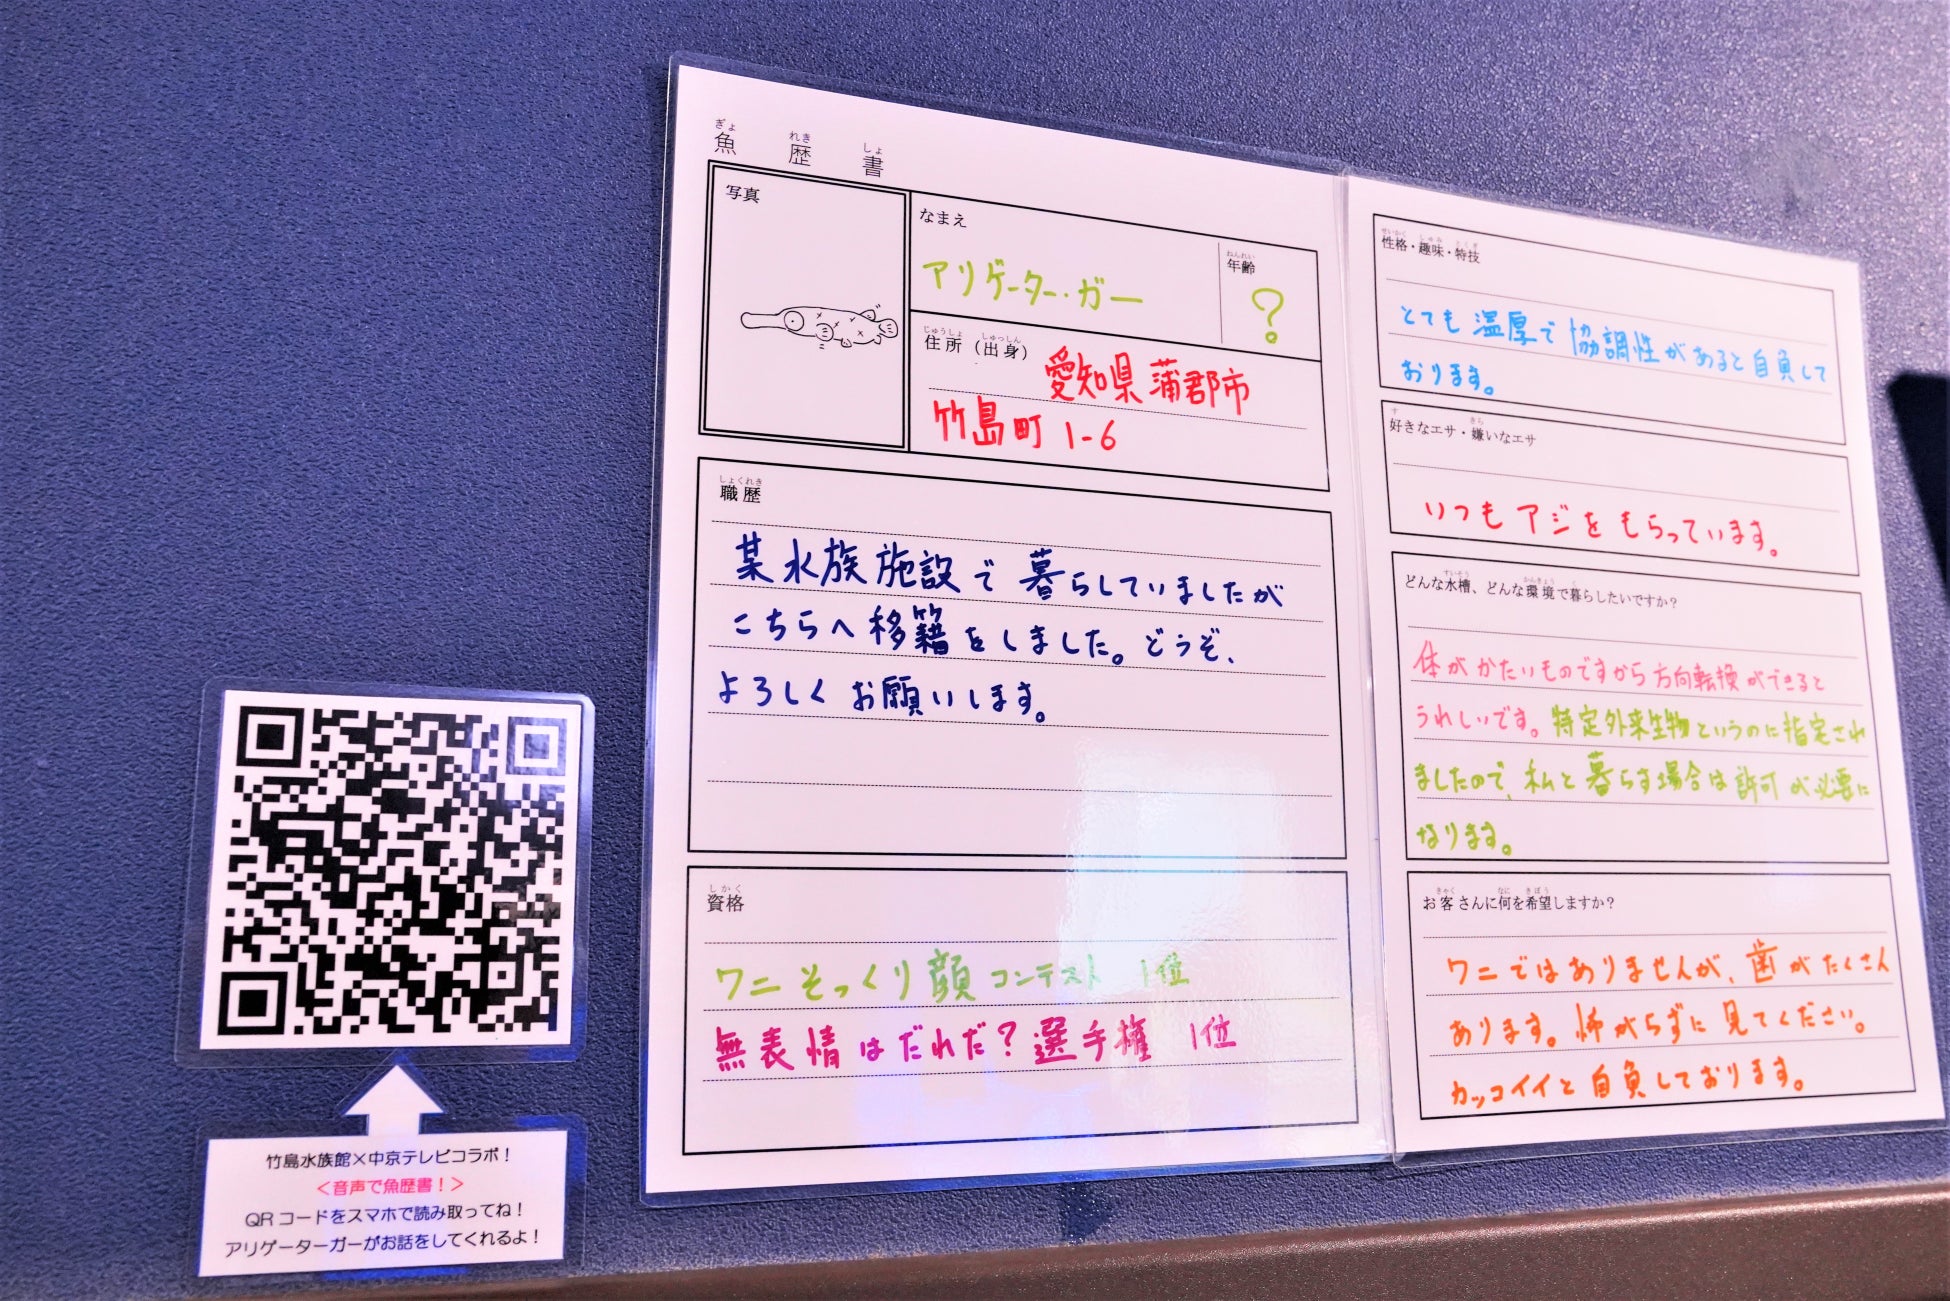 魚歴書
ぎょ れき しょ
写真
なまえ
アリゲーター・ガー
ねんれい
年齢
?
じゅうしょ しゅっしん
住所(出身)
愛知県蒲郡市
竹島町1-6
しょくれき
職歴
某水族施設で暮らしていましたが
こちらへ移籍をしました。どうぞ、
よろしくお願いします。
しかく
資格
ワニそっくり顔コンテスト 1位
無表情はだれだ?選手権 1位
せいかく しゅみ とくぎ
性格・趣味・特技
とても温厚で協調性があると自負して
おります。
す きら
好きなエサ・嫌いなエサ
いつもアジをもらっています。
すいそう かんきょう く
どんな水槽、どんな環境で暮らしたいですか?
体がかたいものですから方向転換ができると
うれしいです。特定外来生物というのに指定され
ましたので、私と暮らす場合は許可が必要に
なります。
きゃく なに きぼう
お客さんに何を希望しますか?
ワニではありませんが、歯がたくさん
あります。怖がらずに見てください。
カッコイイと自負しております。
竹島水族館×中京テレビコラボ!
<音声で魚歴書!>
QRコードをスマホで読み取ってね!
アリゲーターガーがお話をしてくれるよ!